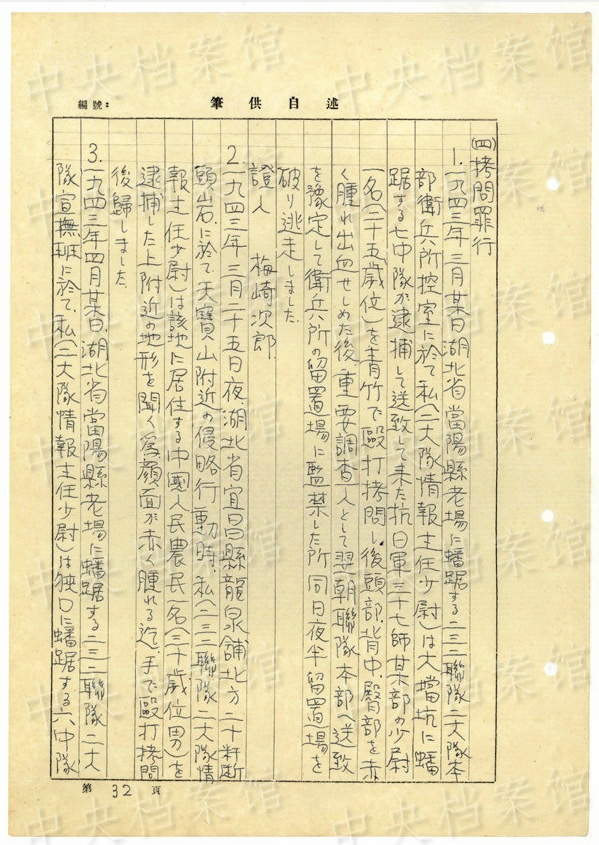 中央档案馆
編號：
筆供自述
(四)拷問罪行
1.一九四三年三月某日、湖北省當陽縣老場に蟠踞する二三二聯隊二大隊本
部衛兵所控室に於て私(二大隊情報主任少尉)は大壋坑に蟠
踞する七中隊が逮捕して送致して来た抗日軍三十七師某部の少尉
一名(二十五歳位)を青竹で毆打拷問し、後頭部、背中、臀部を赤
く腫れ出血せしめた後、重要調査人として翌朝聯隊本部へ送致
を豫定して衛兵所の留置場に監禁した所同日夜半留置場を
破り逃走しました
證人 梅崎次郎
2.一九四三年三月二十五日夜、湖北省宜昌縣龍泉舖北方二十粁断
頭岩に於て天寶山附近の侵略行動時、私(二三二聯隊二大隊情
報主任少尉)は該地に居住する中國人民農民一名(三十歳位男)を
逮捕した上附近の地形を聞く為、顔面が赤く腫れる迄、手で毆打拷問
後歸しました
3.一九四三年四月某日、湖北省當陽縣老場に蟠踞する二三二聯隊二大
隊宣撫班に於て、私(二大隊情報主任少尉)は狭口に蟠踞する六中隊
第 32 頁